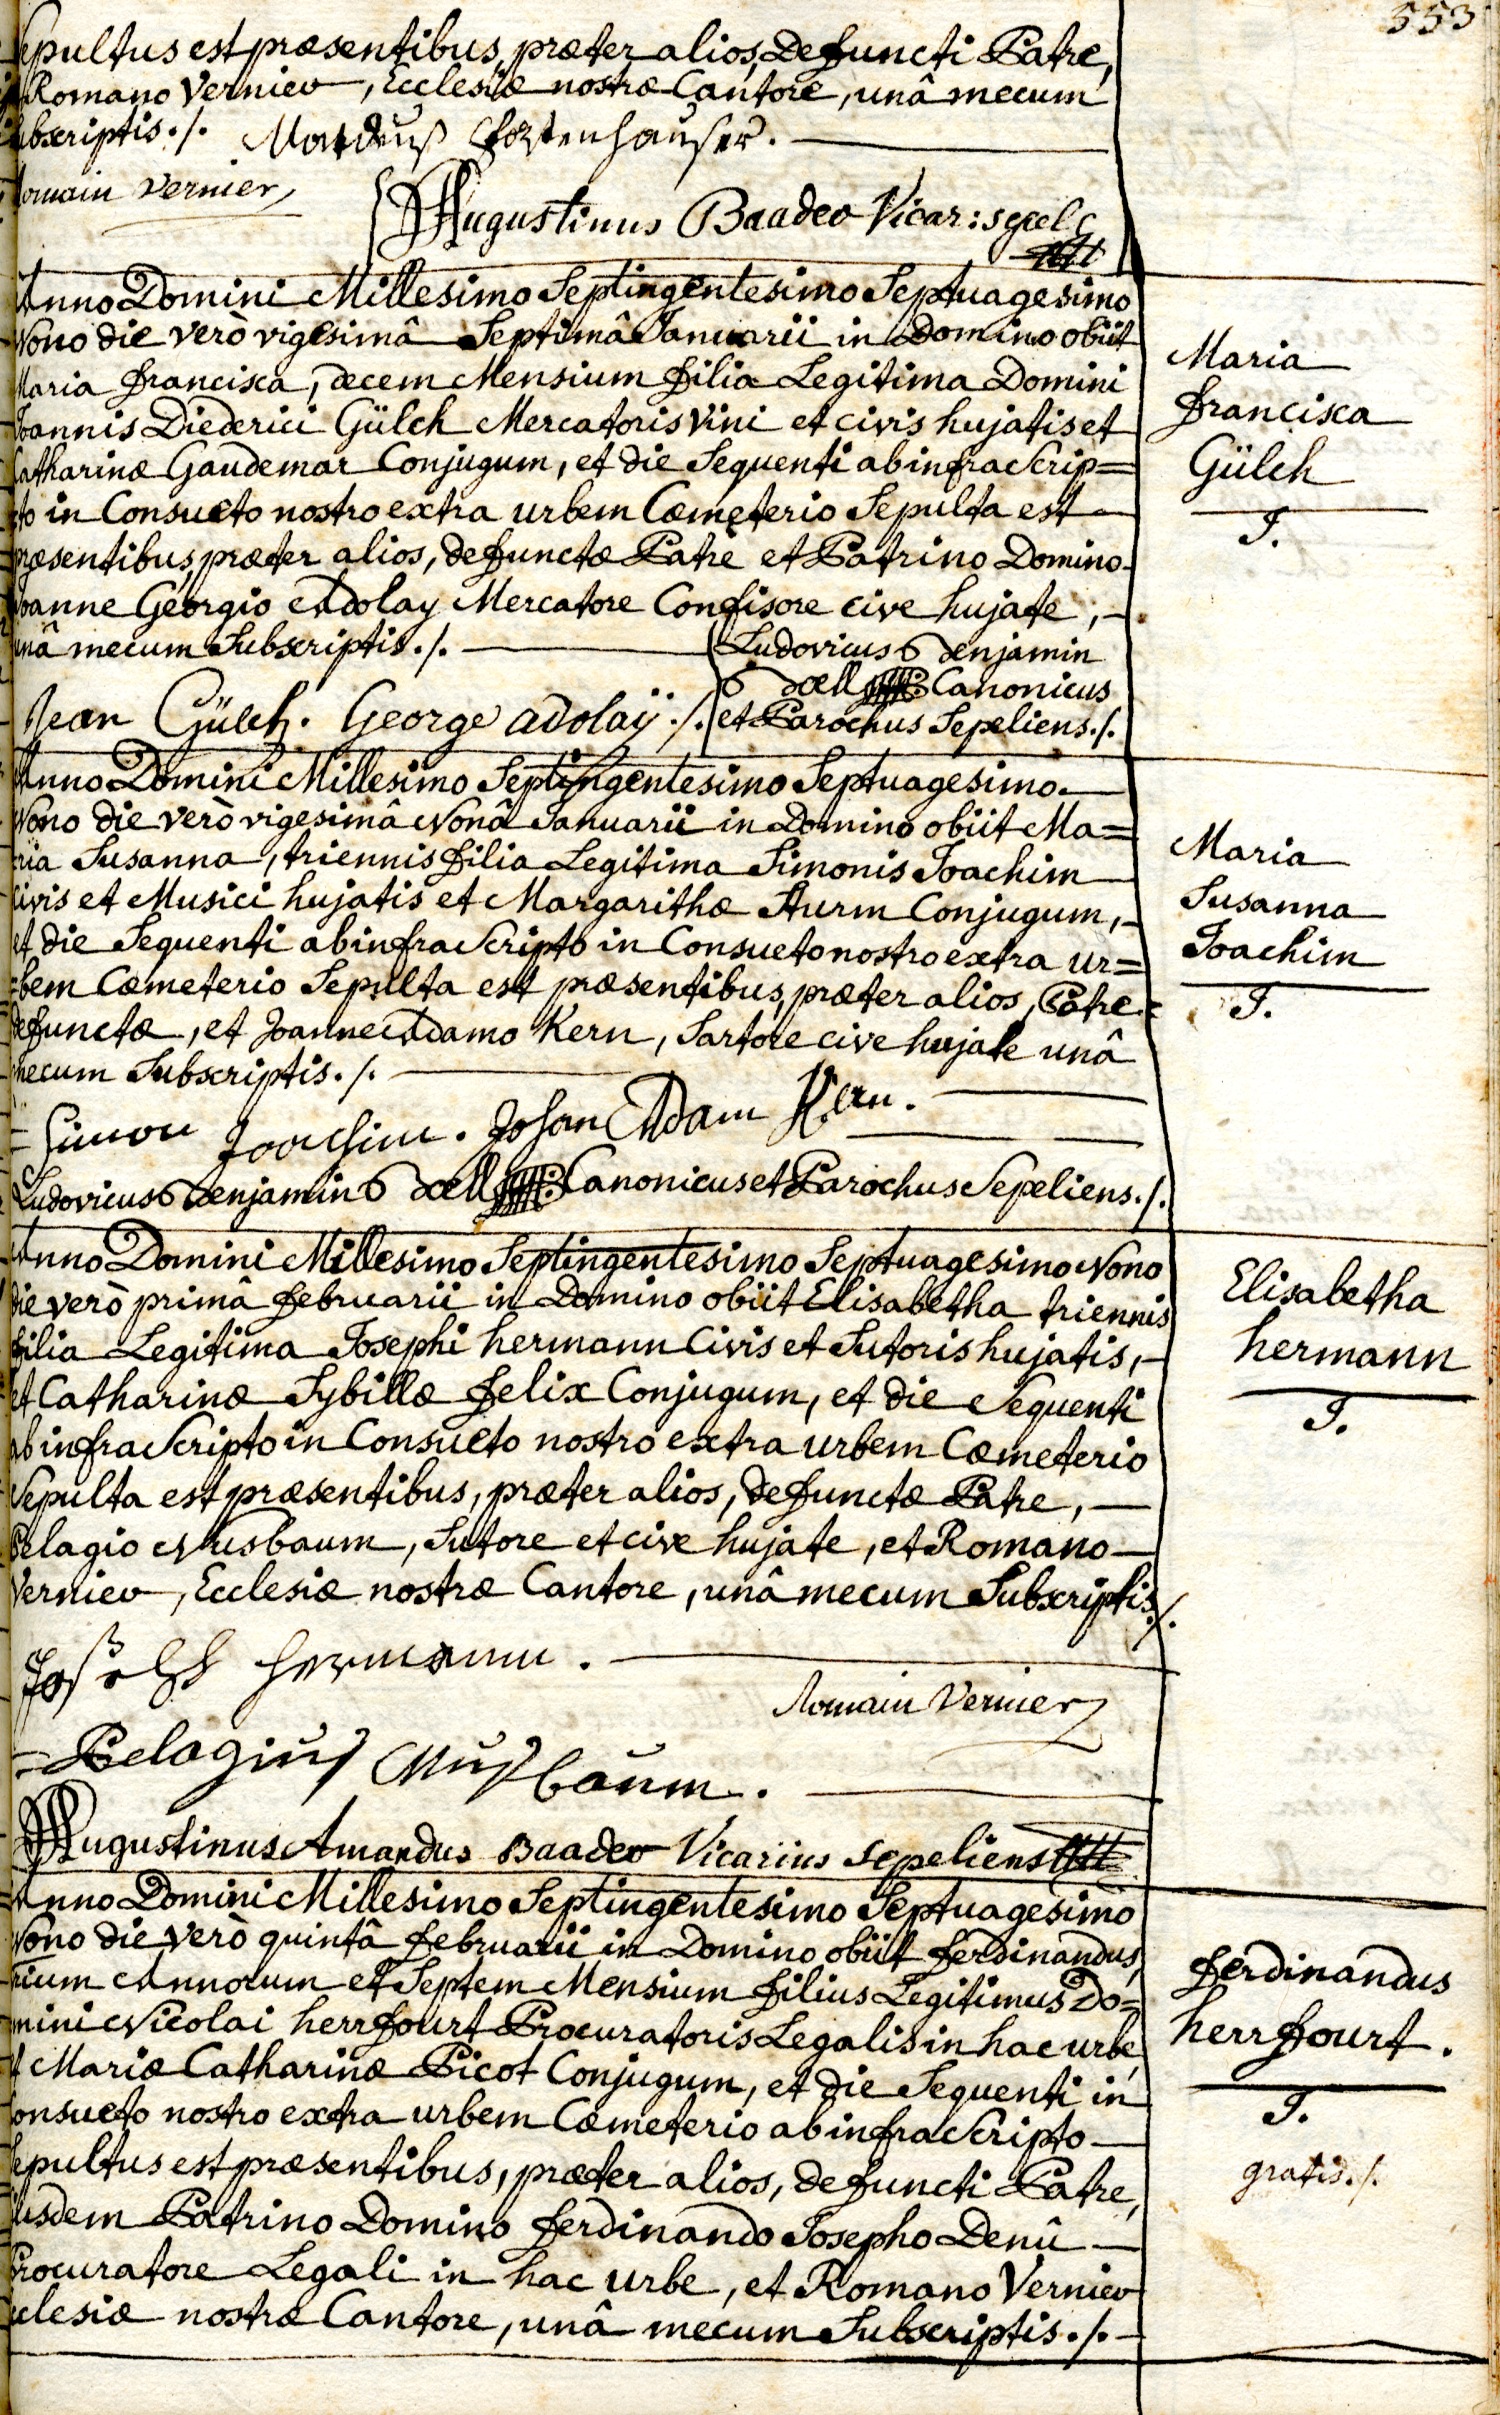 553
Sepultus est præsentibus, præter alios, Defuncti Patre,
Romano Vernier, Ecclesiæ nostræ Cantore, unâ mecum
subscriptis ./.
Romain Vernier
Augustinus Baader Vicar: sepel:
Anno Domini Millesimo Septingentesimo Septuagesimo
Nono die verò vigesimâ Septimâ Januarii in Domino obiit
Maria Francisca, decem Mensium filia Legitima Domini
Joannis Diederici Gülch Mercatoris Vini et civis hujatis et
Catharinæ Gaudemar Conjugum, et die Sequenti ab infra Scrip=
to in Consueto nostro extra urbem Cœmeterio Sepulta est
præsentibus, præter alios, defunctæ Patre et Patrino Domino
Joanne Georgio Adolay Mercatore Confisore cive hujate,
unâ mecum Subscriptis ./.
Ludovicus Benjamin
Doell Canonicus
et Parochus Sepeliens ./.
Jean Gülch. George adolaÿ ./.
Maria
Francisca
Gülch
J.
Anno Domini Millesimo Septingentesimo Septuagesimo
Nono die verò vigesimâ Nonâ Januarii in Domino obiit Ma=
ria Susanna, triennis filia Legitima Simonis Joachim
Civis et Musici hujatis et Margarithæ Sturm Conjugum,
et die Sequenti ab infra Scripto in Consueto nostro extra ur=
=bem Cœmeterio Sepulta est præsentibus, præter alios, Patre
defunctæ, et Joanne Adamo Kern, Sartore cive hujate unâ
mecum Subscriptis ./.
Simon Joachim. Johan Adam Kern.
Ludovicus Benjamin Doell Canonicus et Parochus Sepeliens ./.
Maria
Susanna
Joachim
J.
Anno Domini Millesimo Septingentesimo Septuagesimo Nono
die verò primâ Februarii in Domino obiit Elisabetha triennis
filia Legitima Josephi hermann Civis et Sutoris hujatis,
et Catharinæ Sybillæ Felix Conjugum, et die Sequenti
ab infra Scripto in Consueto nostro extra urbem Cœmeterio
Sepulta est præsentibus, præter alios, defunctæ Patre,
Pelagio Nusbaum, Sutore et cive hujate, et Romano
Vernier, Ecclesiæ nostræ Cantore, unâ mecum Subscriptis ./.
Joseph hermann.
Romain Vernier
Pelagius Nusbaum.
Augustinus Amandus Baader Vicarius sepeliens
Elisabetha
hermann
J.
Anno Domini Millesimo Septingentesimo Septuagesimo
Nono die verò quintâ Februarii in Domino obiit Ferdinandus,
trium Annorum et Septem Mensium filius Legitimus Do=
mini Nicolai herrfourt Procuratoris Legalis in hac urbe
et Mariæ Catharinæ Picot Conjugum, et die Sequenti in
Consueto nostro extra urbem Cœmeterio ab infra Scripto
Sepultus est præsentibus, præter alios, defuncti Patre,
ejusdem Patrino Domino Ferdinando Josepho Denû
Procuratore Legali in hac urbe, et Romano Vernier
Ecclesiæ nostræ Cantore, unâ mecum Subscriptis ./.
Ferdinandus
herrfourt.
J.
gratis ./.